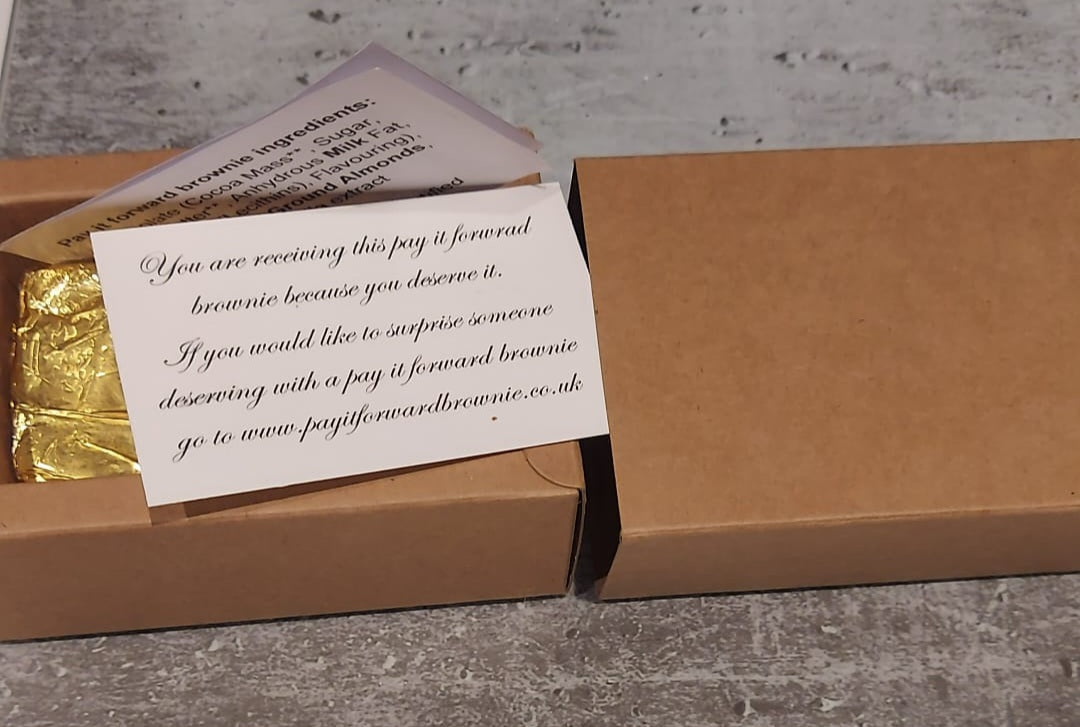 Pay it forward brownie ingredients:
(Cocoa Mass**, Sugar,
Anhydrous Milk Fat,
Flavouring),
Ground Almonds,
extract
You are receiving this pay it forwrad
brownie because you deserve it.
If you would like to surprise someone
deserving with a pay it forward brownie
go to www.payitforwardbrownie.co.uk